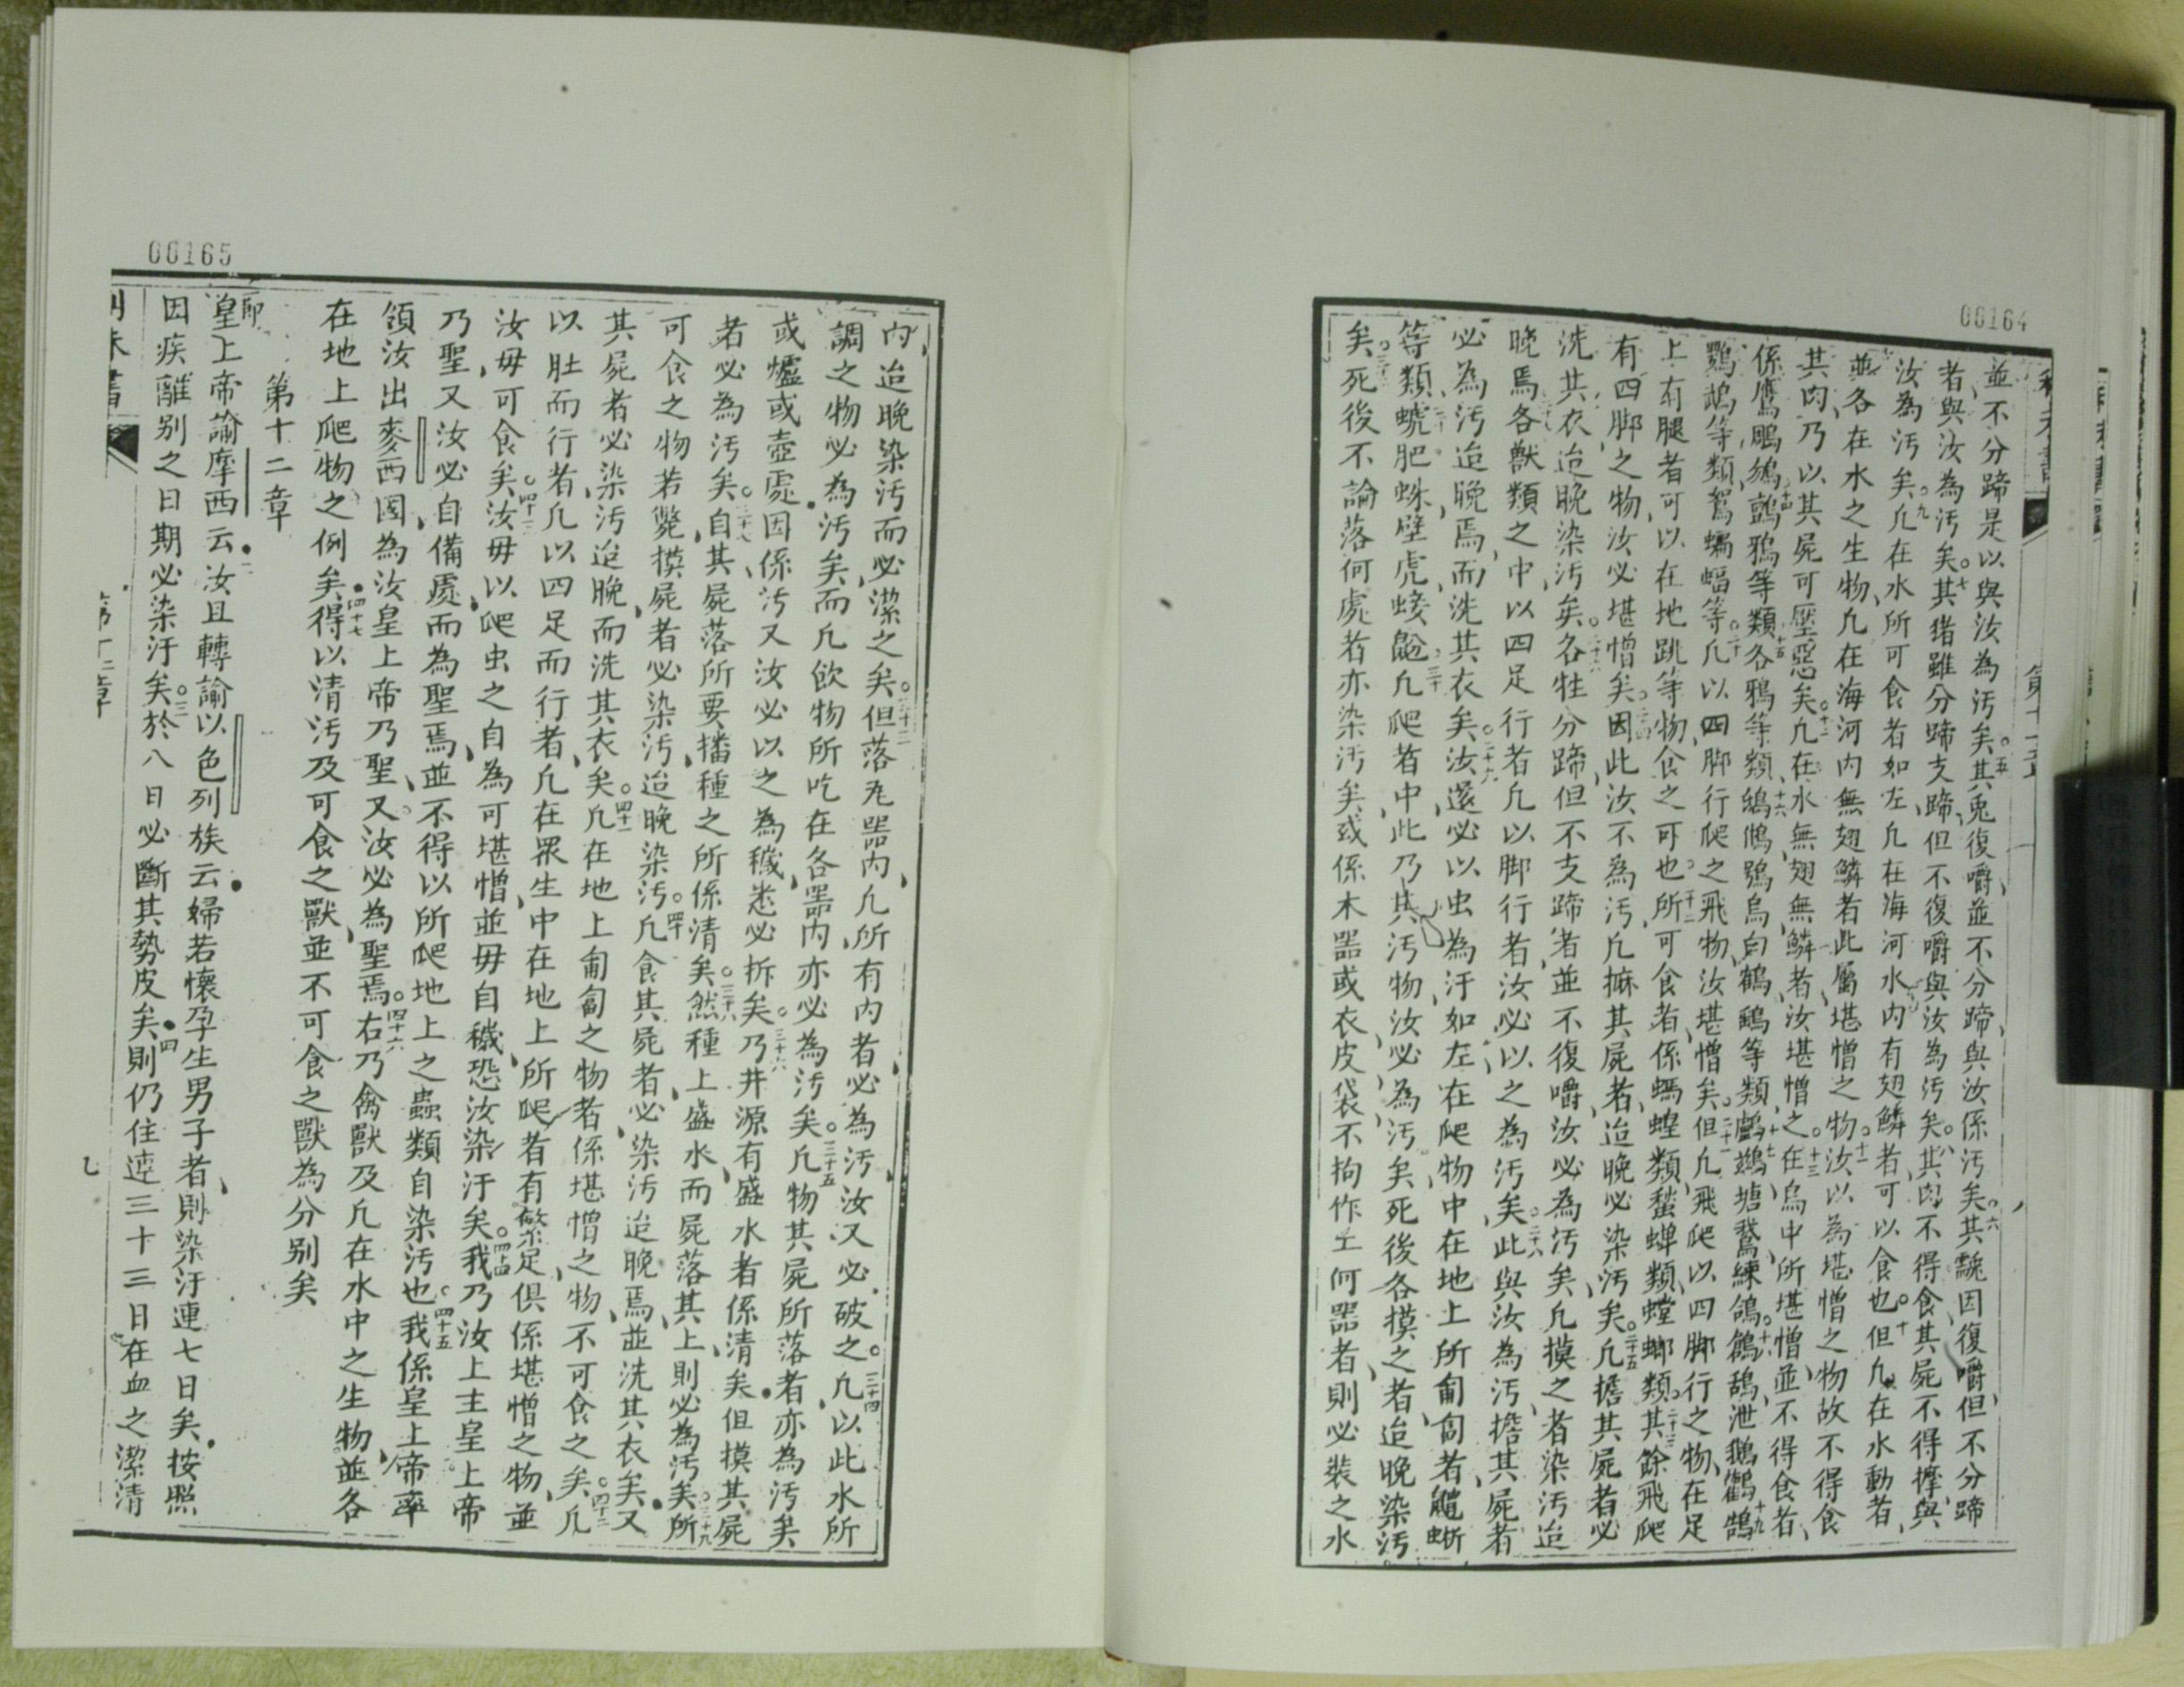 00164
並不分蹄是以與汝為汚矣。五其兎復嚼並不分蹄與汝係汚矣。六其䮫因復嚼但不分蹄
者與汝為汚矣。七其猪雖分蹄支蹄但不復嚼與汝為汚矣。八其肉不得食其屍不得摩與
汝為汚矣。九凢在水所可食者如左凢在海河水內有翅鱗者可以食也。十但凢在水動者
並各在水之生物凢在海河內無翅鱗者此屬堪憎之物。十一汝以為堪憎之物故不得食
其肉乃以其屍可壓惡矣。十二凢在水無翅無鱗者汝堪憎之。十三在鳥中所堪憎並不得食者
係鷹鵰等類。十五各鴉等類。十六
等類鴛蝙蝠等。二十凢以四脚行爬之飛物汝堪憎矣。二十一但凢飛爬以四脚行之物在足
上有腿者可以在地跳等物食之可也。二十二所可食者係螞蝗類蝥蜱類螳螂類。二十三其餘飛爬
有四脚之物汝必堪憎矣。二十四因此汝不為汚凢摸其屍者迨晚必染汚矣。二十五凢擔其屍者必
洗其衣迨晚染汚矣。二十六各牲分蹄但不支蹄者並不復嚼汝必為汚矣凢摸之者染汚迨
晚焉各獸類之中以四足行者凢以脚行者汝必以之為汚矣。二十八此與汝為汚擔其屍者
必為汚迨晚焉而洗其衣矣。二十九汝還必以虫為汙如左在爬物中在地上所匍匐者
等類。三十凢爬者中此乃其汚物汝必為汚矣死後各摸之者迨晚染汚
矣。三十二死後不論落何處者亦染汚矣或係木噐或衣皮袋不拘作工何噐者則必裝之水
00165
內迨晚染汚而必潔之矣。三十三但落凢噐內凢所有內者必為汚汝又必破之。三十四凢以此水所
調之物必為汚矣而凢飲物所吃在各噐內亦必為汚矣。三十五凢物其屍所落者亦為汚矣
或爐或壺處因係汚又汝必以之為穢悉必拆矣。三十六乃井源有盛水者係清矣但摸其屍
者必為汚矣。三十七自其屍落所要播種之所係清矣。三十八然種上盛水而屍落其上則必為汚矣。三十九所
可食之物若斃摸屍者必染汚迨晚染汚。四十凢食其屍者必染汚迨晚焉並洗其衣矣又
其屍者必染汚迨晚而洗其衣矣。四十一凢在地上匍匐之物者係堪憎之物不可食之矣。四十二凢
以肚而行者凢以四足而行者凢在眾生中在地上所爬者有繁足俱係堪憎之物並
汝毋可食矣。四十三汝毋以爬虫之自為可堪憎並毋自穢恐汝染汙矣。四十四我乃汝上主皇上帝
乃聖又汝必自備處而為聖焉並不得以所爬地上之蟲類自染汚也。四十五我係皇上帝率
領汝出麥西國為汝皇上帝乃聖又汝必為聖焉。四十六右乃禽獸及凢在水中之生物並各
在地上爬物之例矣。四十七得以清汚及可食之獸並不可食之獸為分別矣
第十二章
皇上帝諭摩西云。二汝且轉諭以色列族云婦若懷孕生男子者則染汙連七日矣按照
因疾離別之日期必染汙矣。三於八日必斷其勢皮矣。四則仍住連三十三日在血之潔清
第十二章